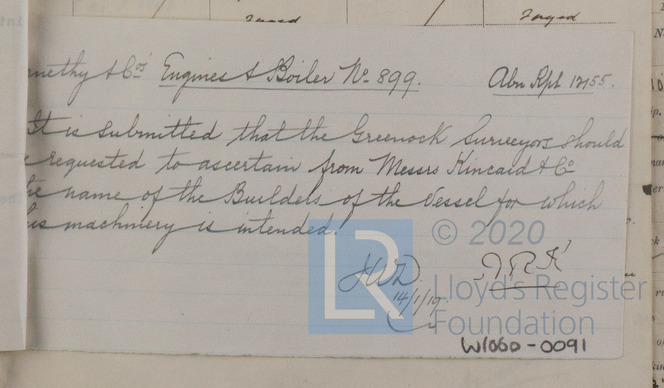 Forged
nethy & Co's Engines & Boiler No 899. Abn Rpt 12155.
It is submitted that the Greenock Surveyors should
e requested to ascertain from Messrs Kincaid & Co
he name of the Builders of the Vessel for which
his machinery is intended.
14/1/19
LR
© 2020
Lloyd's Register
Foundation
W1060-0091